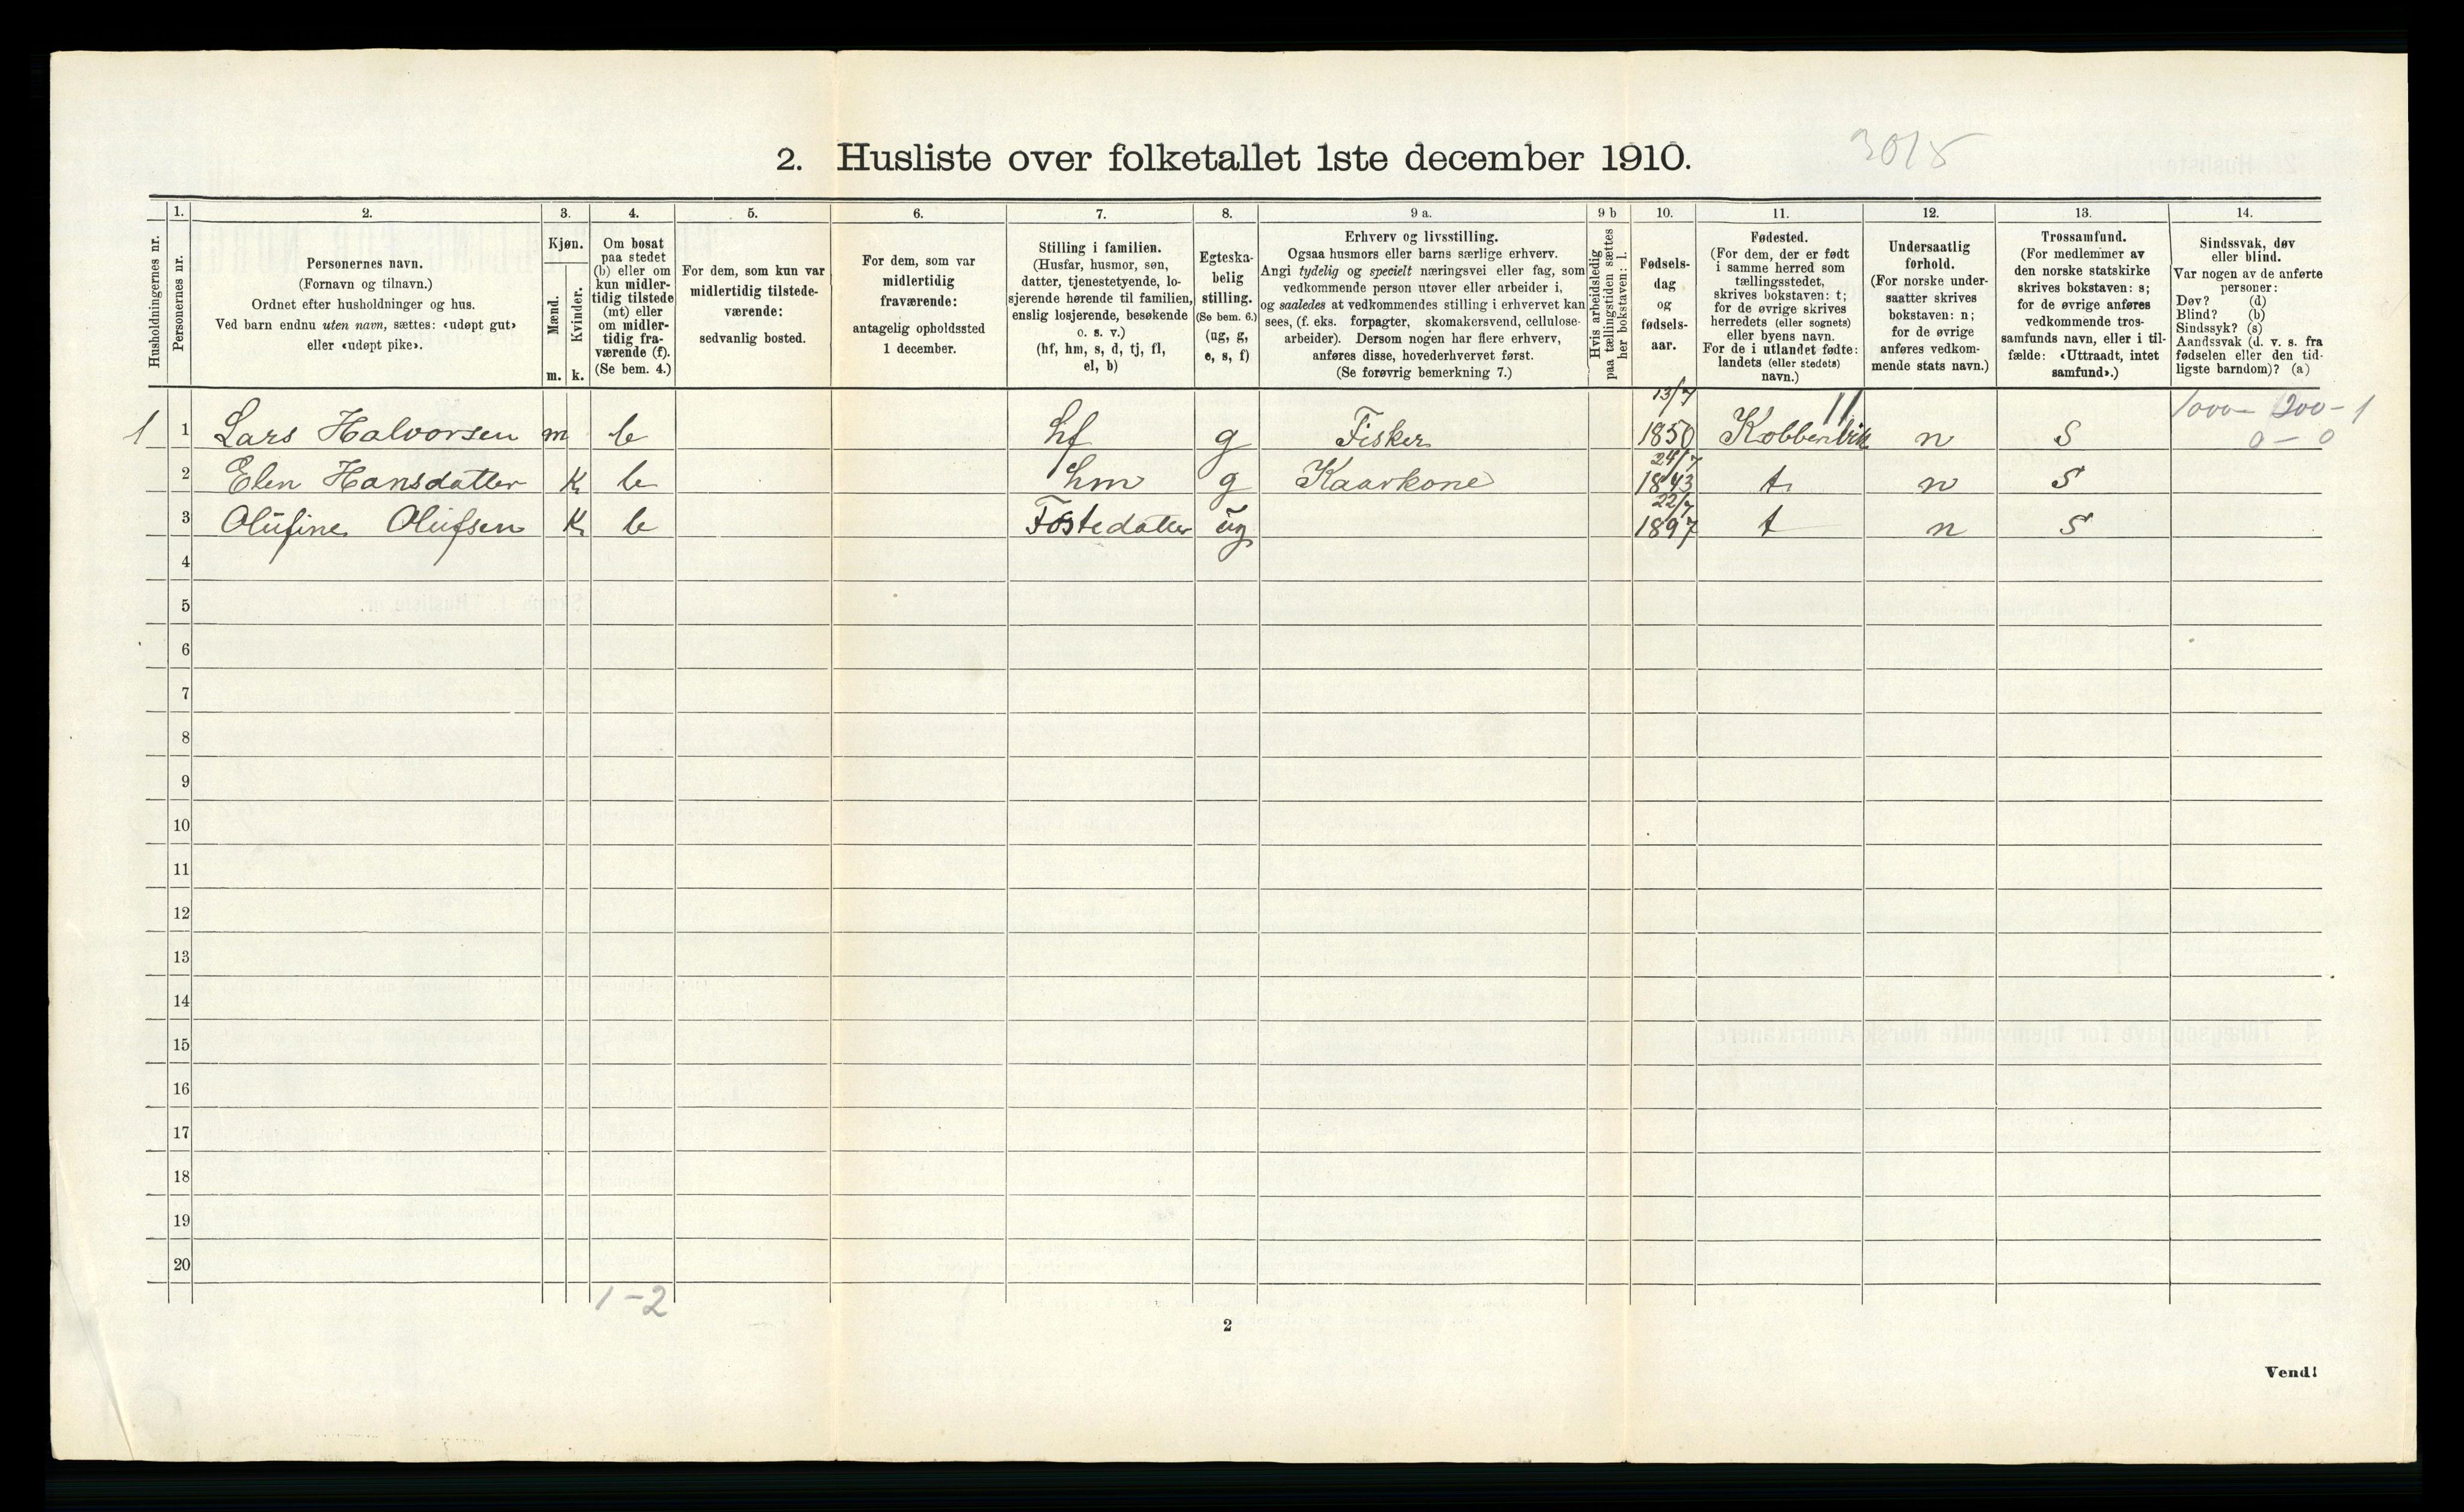 2. Husliste over folketallet 1ste december 1910.
3015
Husholdningernes nr.
1.
Personernes nr.
2.
Personernes navn.
(Fornavn og tilnavn.)
Ordnet efter husholdninger og hus.
Ved barn endnu uten navn, sættes: «udøpt gut»
eller «udøpt pike».
3.
Kjøn.
Mænd.
Kvinder.
m. k.
4.
Om bosat
paa stedet
(b) eller om
kun midler-
tidig tilstede
(mt) eller
om midler-
tidig fra-
værende (f).
(Se bem. 4.)
5.
For dem, som kun var
midlertidig tilstede-
værende:
sedvanlig bosted.
6.
For dem, som var
midlertidig
fraværende:
antagelig opholdssted
1 december.
7.
Stilling i familien.
(Husfar, husmor, søn,
datter, tjenestetyende, lo-
sjerende hørende til familien,
enslig losjerende, besøkende
o. s. v.)
(hf, hm, s, d, tj, fl,
el, b)
8.
Egteska-
belig
stilling.
(Se bem. 6.)
(ug, g,
e, s, f)
9 a.
Erhverv og livsstilling.
Ogsaa husmors eller barns særlige erhverv.
Angi tydelig og specielt næringsvei eller fag, som
vedkommende person utøver eller arbeider i,
og saaledes at vedkommendes stilling i erhvervet kan
sees, (f. eks. forpagter, skomakersvend, cellulose-
arbeider). Dersom nogen har flere erhverv,
anføres disse, hovederhvervet først.
(Se forøvrig bemerkning 7.)
9 b
Hvis arbeidsledig
paa tællingstiden sættes
her bokstaven: l.
10.
Fødsels-
dag
og
fødsels-
aar.
11.
Fødested.
(For dem, der er født
i samme herred som
tællingsstedet,
skrives bokstaven: t;
for de øvrige skrives
herredets (eller sognets)
eller byens navn.
For de i utlandet fødte:
landets (eller stedets)
navn.)
12.
Undersaatlig
forhold.
(For norske under-
saatter skrives
bokstaven: n;
for de øvrige
anføres vedkom-
mende stats navn.)
13.
Trossamfund.
(For medlemmer av
den norske statskirke
skrives bokstaven: s;
for de øvrige anføres
vedkommende tros-
samfunds navn, eller i til-
fælde: «Uttraadt, intet
samfund».)
14.
Sindssvak, døv
eller blind.
Var nogen av de anførte
personer:
Døv? (d)
Blind? (b)
Sindssyk? (s)
Aandssvak (d. v. s. fra
fødselen eller den tid-
ligste barndom)? (a)
13/7 11 1000 - 200 - 1
1 1 Lars Halvorsen m b hf g Fisker 1850 Kobbervik n S 0 - 0
24/7
2 Elen Hansdatter K b hm g Kaarkone 1843 t n S
22/7
3 Olufine Olufsen K b Fostedatter ug 1897 t n S
4
5
6
7
8
9
10
11
12
13
14
15
16
17
18
19
20
1-2
2
Vend!